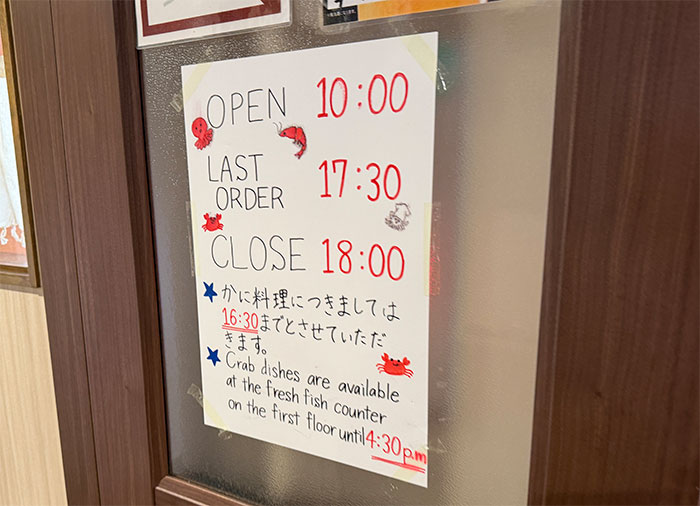 OPEN 10:00
LAST
ORDER 17:30
CLOSE 18:00
★かに料理につきましては
16:30までとさせていただ
きます。
★Crab dishes are available
at the fresh fish counter
on the first floor until 4:30p.m